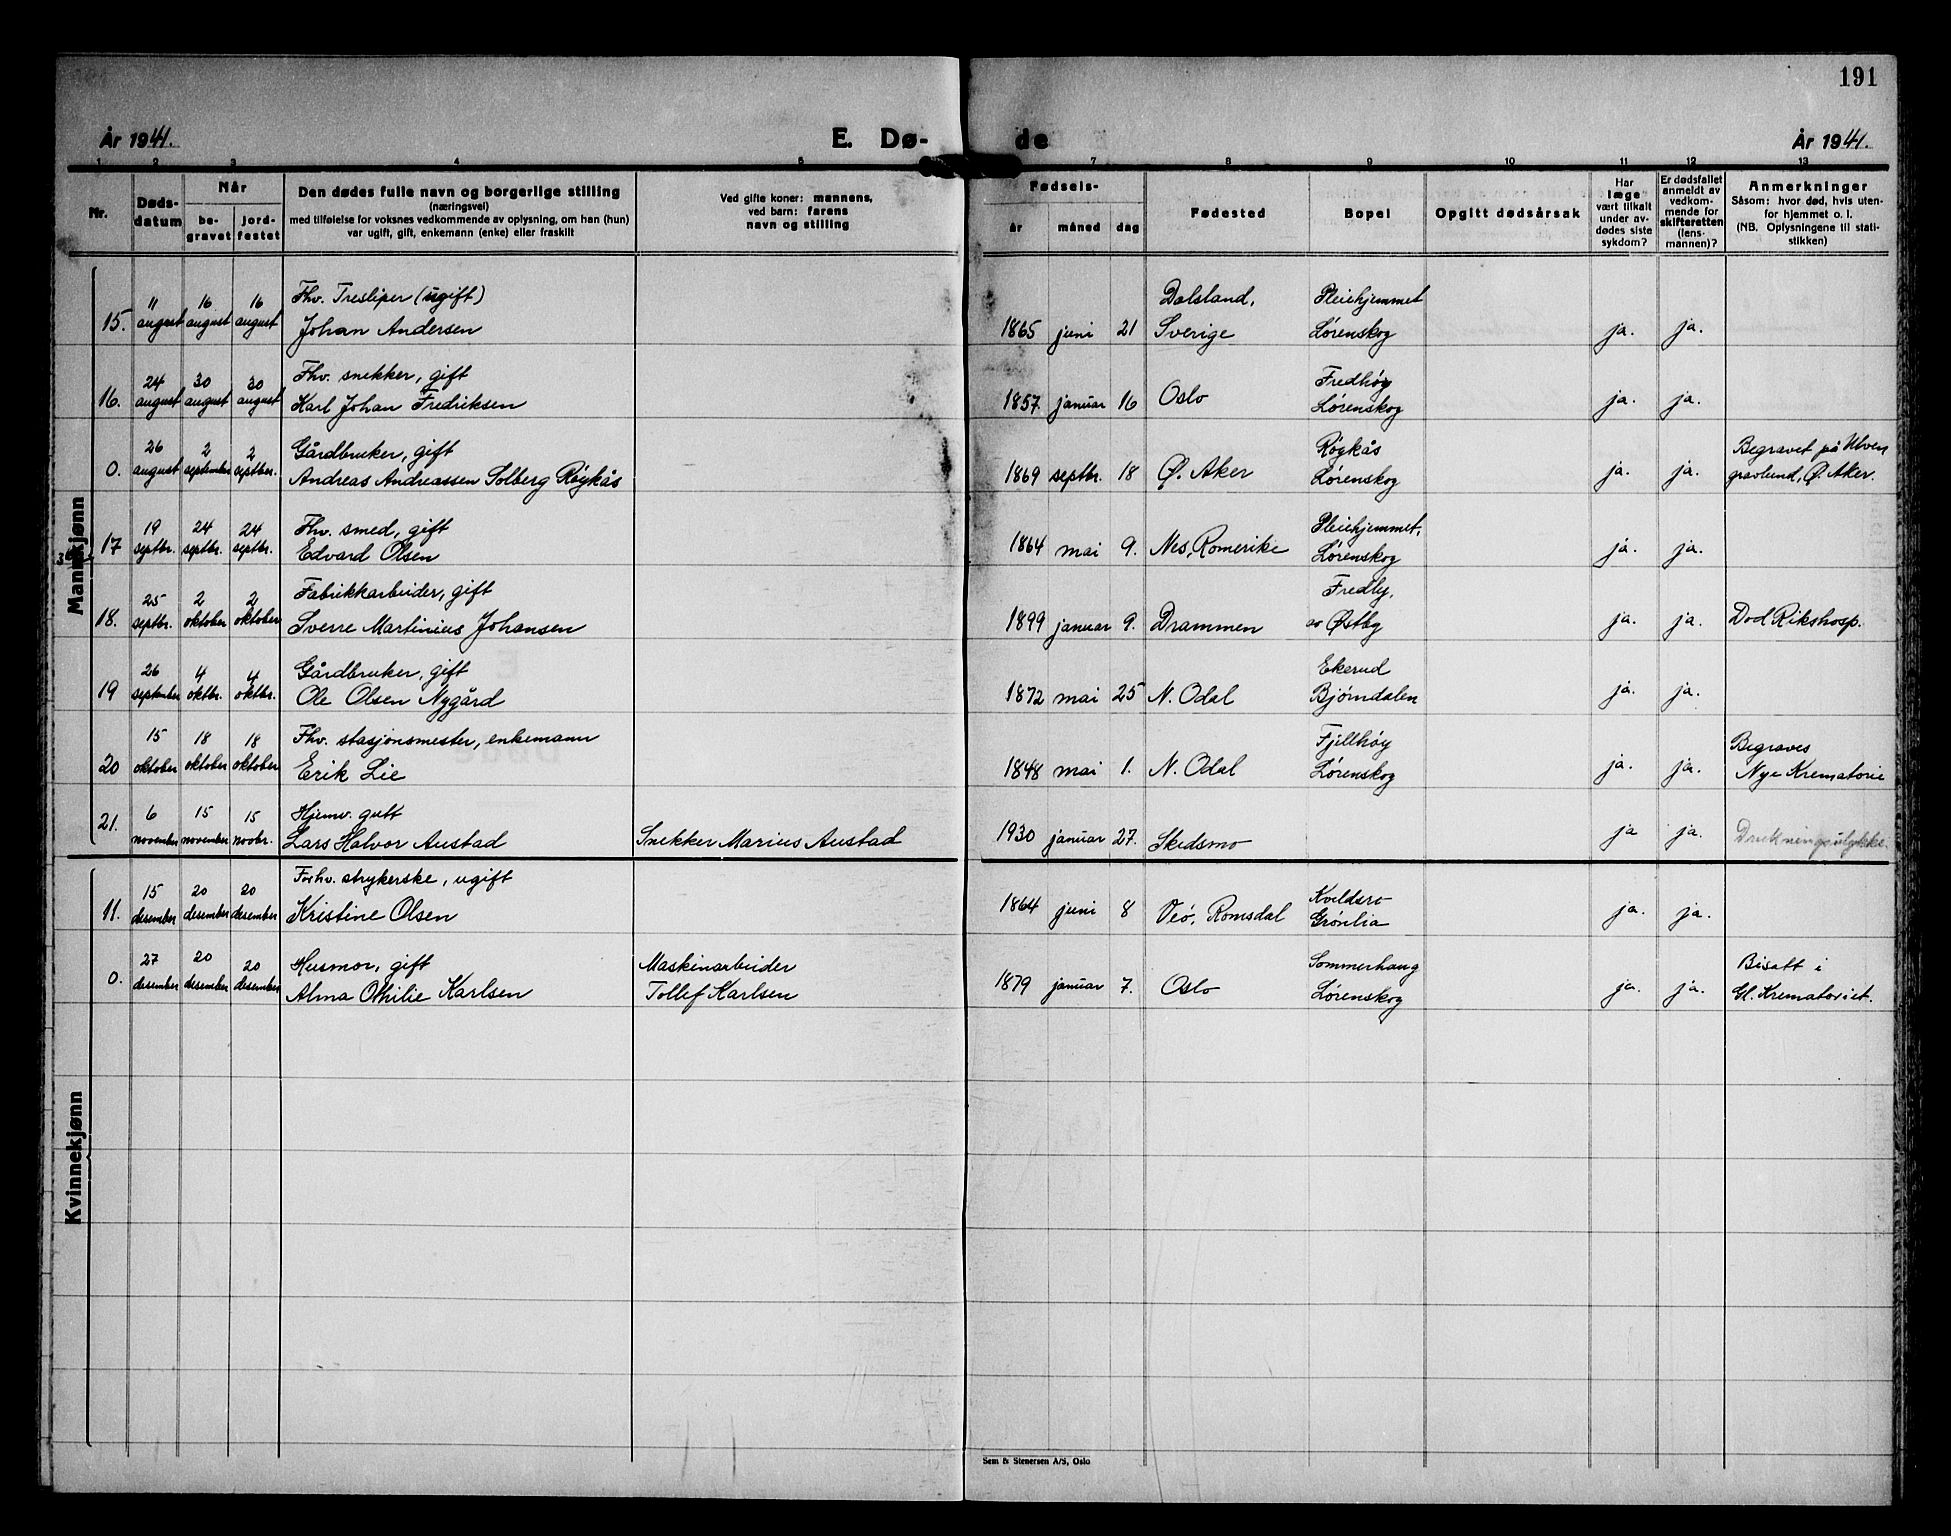 191
År 1941.
E. Dø-
de
År 1941.
1 2 3 4 5 7 8 9 10 11 12 13
Nr.
Døds-
datum
Når
be-
gravet
jord-
festet
Den dødes fulle navn og borgerlige stilling
(næringsvei)
med tilføielse for voksnes vedkommende av oplysning, om han (hun)
var ugift, gift, enkemann (enke) eller fraskilt
Ved gifte koner: mannens,
ved barn: farens
navn og stilling
Fødsels-
år måned dag
Fødested
Bopel
Opgitt dødsårsak
Har
læge
vært tilkalt
under av-
dødes siste
sykdom?
Er dødsfallet
anmeldt av
vedkom-
mende for
skifteretten
(lens-
mannen)?
Anmerkninger
Såsom: hvor død, hvis uten-
for hjemmet o. l.
(NB. Oplysningene til stati-
stikken)
Mannkjønn
11 16 16 Fhv. Tresliper (ugift) Dalsland, Pleiehjemmet
15. august august august Johan Andersen 1865 juni 21 Sverige Lørenskog ja. ja.
24 30 30 Fhv. snekker, gift Fredhøy
16. august august august Karl Johan Fredriksen 1857 januar 16 Oslo Lørenskog ja. ja.
26 2 2 Gårdbruker, gift Røykås Begravet på Ulven
0. august september septbr. Andreas Andreassen Solberg Røykås 1869 septbr. 18 Ø. Aker Lørenskog ja. ja. gravlund, Ø. Aker.
19 24 24 Fhv. smed, gift Pleiehjemmet,
17 septbr. septbr. septbr. Edvard Olsen 1864 mai 9. Nes, Romerike Lørenskog ja. ja.
25 2 2 Fabrikkarbeider, gift Fredly,
18. septbr. oktober oktober Sverre Martinius Johansen 1899 januar 9. Drammen av Østby ja. ja. Død Rikshosp.
26 4 4 Gårdbruker, gift Ekerud
19 september oktbr. oktbr. Ole Olsen Nygård 1872 mai 25 N. Odal Bjørndalen ja. ja.
15 18 18 Fhv. stasjonsmester, enkemann Fjellhøy Begraves
20 oktober oktober oktober Erik Lie 1848 mai 1. N. Odal Lørenskog ja. ja. Nye Krematorie
6 15 15 Hjemv. gutt
21. november november novbr. Lars Halvor Austad Snekker Marius Austad 1930 januar 27. Skedsmo ja ja. Drukningsulykke.
Kvinnekjønn
15 20 20 Forhv. strykerske, ugift Kveldsro
11. desember desember desember Kristine Olsen 1864 juni 8 Veø, Romsdal Grønlia ja. ja.
27 20 20 Husmor, gift Maskinarbeider Sommerhaug Bisatt i
0. desember desember desember Alma Othilie Karlsen Tollef Karlsen 1879 januar 7. Oslo Lørenskog ja. ja. Gl. Krematoriet.
Sem & Stenersen A/S, Oslo